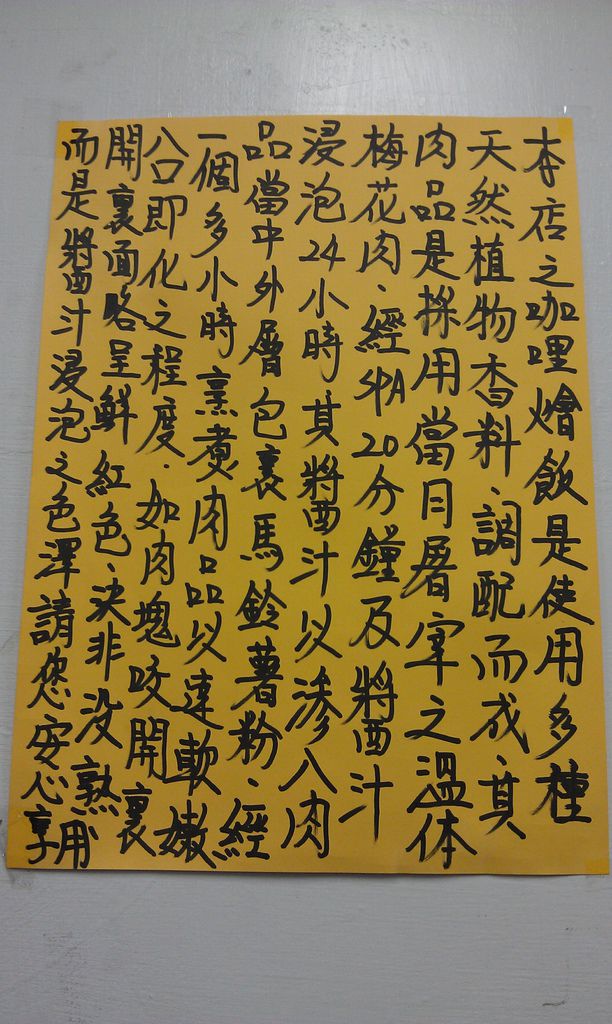 本店之咖哩燴飯是使用多種
天然植物香料、調配而成、其
肉品是採用當日屠宰之溫体
梅花肉、經SPA20分鐘及將酉汁
浸泡24小時、其將酉汁以滲入肉
品當中外層包裹馬鈴薯粉、經
一個多小時烹煮肉品以達軟嫩
入口即化之程度.如肉塊咬開裏
開裏面略呈鮮紅色、決非没熟
而是將酉汁浸泡之色澤請您安心享用